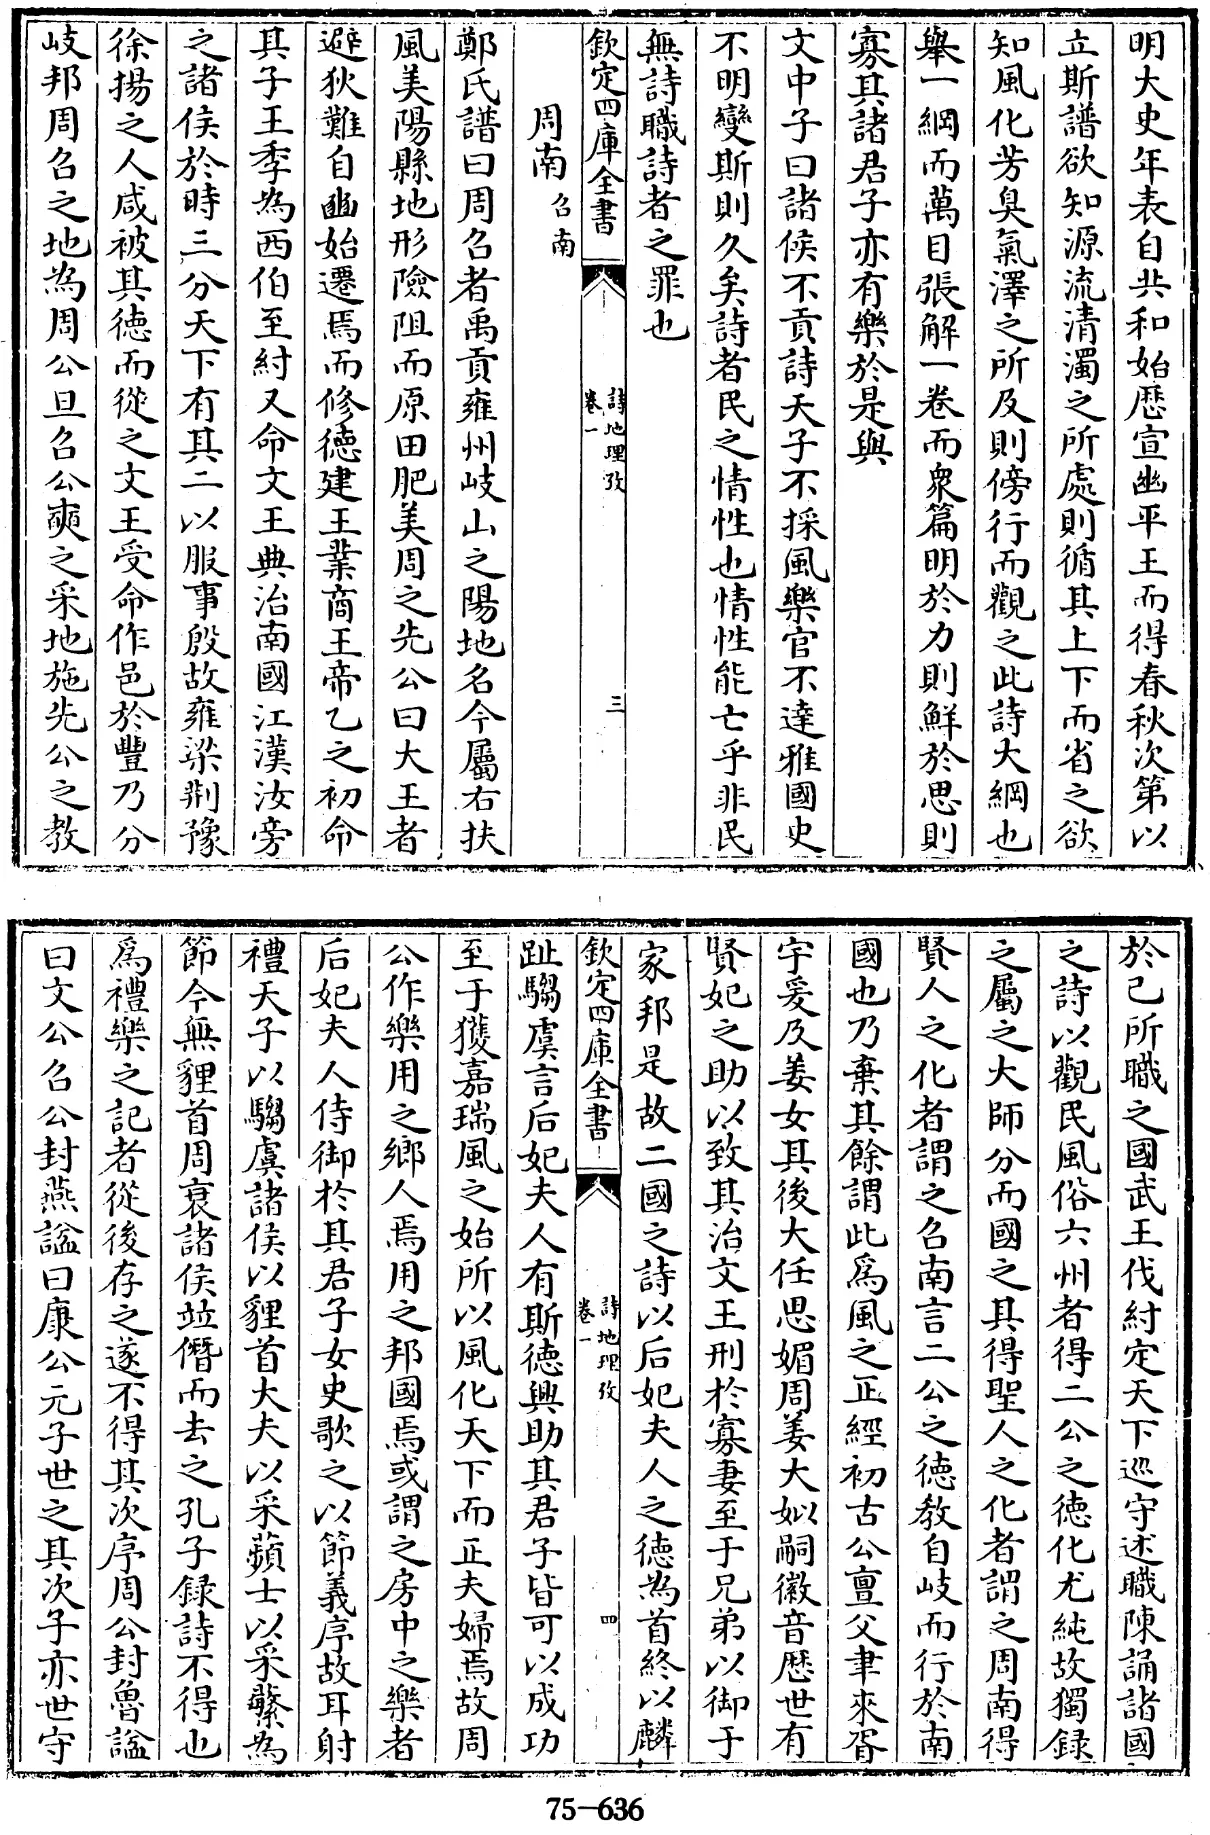 明大史年表自共和始歴宣幽平王而得春秋次第以
立斯譜欲知源流清濁之所處則循其上下而省之欲
知風化芳臭氣澤之所及則傍行而觀之此詩大綱也
舉一綱而萬目張解一卷而衆篇明於力則鮮於思則
寡其諸君子亦有樂於是與
文中子曰諸侯不貢詩天子不採風樂官不達雅國史
不明變斯則久矣詩者民之情性也情性能亡乎非民
無詩職詩者之罪也
欽定四庫全書
詩地理攷
卷一
三
周南召南
鄭氏譜曰周召者禹貢雍州岐山之陽地名今屬右扶
風美陽縣地形險阻而原田肥美周之先公曰大王者
避狄難自豳始遷焉而修徳建王業商王帝乙之初命
其子王季為西伯至紂又命文王典治南國江漢汝旁
之諸侯於時三分天下有其二以服事殷故雍梁荆豫
徐揚之人咸被其徳而從之文王受命作邑於豐乃分
岐邦周召之地為周公旦召公奭之采地施先公之教
於己所職之國武王伐紂定天下巡守述職陳誦諸國
之詩以觀民風俗六州者得二公之徳化尤純故獨録
之屬之大師分而國之其得聖人之化者謂之周南得
賢人之化者謂之召南言二公之徳教自岐而行於南
國也乃棄其餘謂此爲風之正經初古公亶父聿來胥
宇爰及姜女其後大任思媚周姜大姒嗣徽音歴世有
賢妃之助以致其治文王刑於寡妻至于兄弟以御于
家邦是故二國之詩以后妃夫人之徳為首終以麟
欽定四庫全書
詩地理攷
卷一
四
趾騶虞言后妃夫人有斯徳興助其君子皆可以成功
至于獲嘉瑞風之始所以風化天下而正夫婦焉故周
公作樂用之鄉人焉用之邦國焉或謂之房中之樂者
后妃夫人侍御於其君子女史歌之以節義序故耳射
禮天子以騶虞諸侯以貍首大夫以采蘋士以采蘩為
節今無貍首周衰諸侯竝僭而去之孔子録詩不得也
爲禮樂之記者從後存之遂不得其次序周公封魯諡
曰文公召公封燕諡曰康公元子世之其次子亦世守
75-636